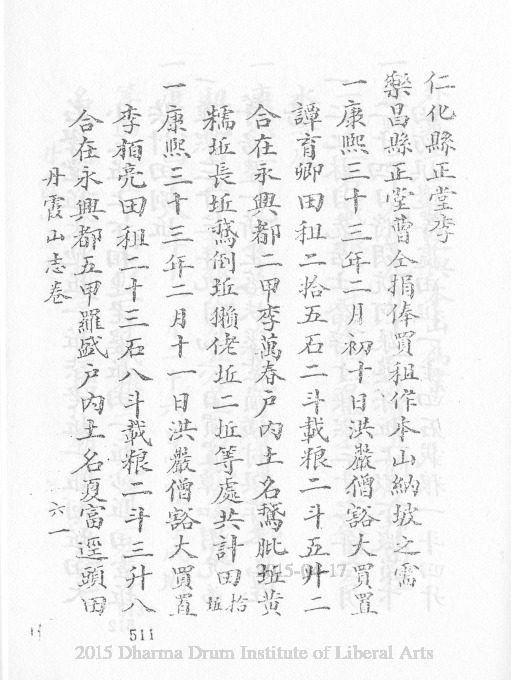 仁化縣正堂李
樂昌縣正堂曹仝捐俸買租作本山納坡之需
一康熙三十三年二月初十日洪嚴僧豁大買置
譚育卿田租二拾五石二斗載粮二斗五升二
合在永興都二甲李萬春戶內土名鵞肶坵黃
糯坵長坵鵞倒坵獺佬坵二坵等處共計田拾坵
一康熙三十三年二月十一日洪嚴僧豁大買置
李栢亮田租二十三石八斗載粮二斗三升八
合在永興都五甲羅盛戶內土名夏富逕頭田
丹霞山志卷
六一
511
2015 Dharma Drum Institute of Liberal Arts